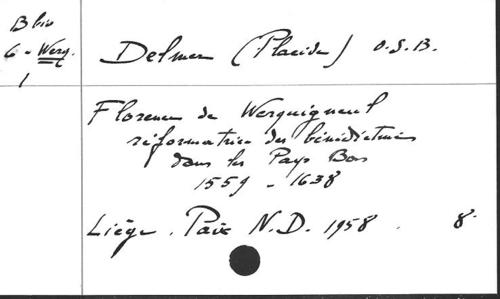 B bio
6 - Werq.
1
Delmer (Placide) O.S.B.
Florence de Werquigneul
réformatrice des bénédictines
dans les Pays Bas
1559 - 1638
Liège. Paix N.D. 1958. 8°